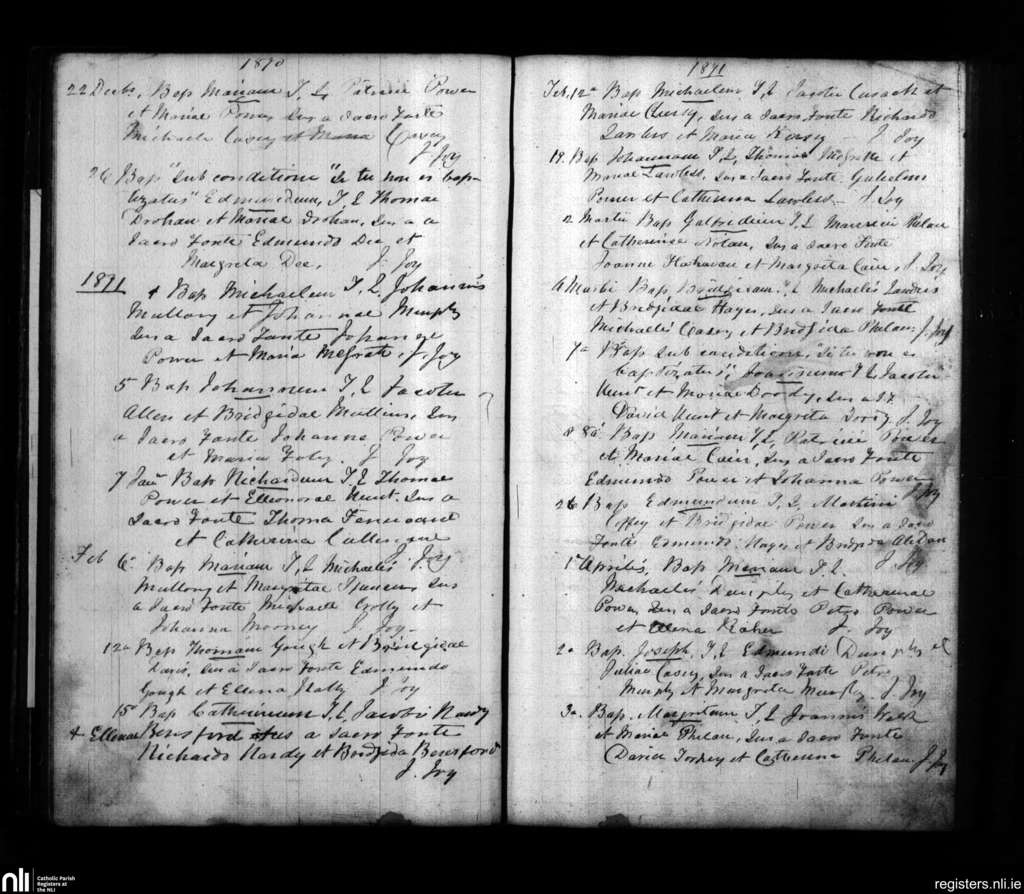 1870
22 Decbr, Bap Mariam F. L. Patricii Power
et Mariae Power Sus a Sacro Fonte
Michaele Casey et Maria Casey
J. Joy
26 Bap "Sub conditione" "Si tu non es bap-
tizatus" Edmundum, F. L Thomae
Drohan et Mariae Drohan, Sus a
Sacro Fonte Edmundo Dee et
Margreta Dee, J. Joy
1871
4 Bap Michaelem F. L. Johannis
Mullony et Johannae Murphy
Sus a Sacro Fonte
Power et Maria McGrath, J. Joy
5 Bap Johannem F. L Jacobi
Allen et Bridgidae Mullins, Sus
a Sacro Fonte Johanne Power
et Maria Foley. J. Joy
7 Jan Bap Richardum F. L Thomae
Power et Elleonorae Hunt. Sus a
Sacro Fonte Thoma
et Catherina
J. Joy
Feb 6 Bap Mariam F. L Michaelis
Mullony et Margritae Sus
a Sacro Fonte Michaele et
Johanna Mooney J. Joy
12a Bap Thomam Gough et Bridgidae
Davis, Sus a Sacro Fonte Edmundo
Gough et Ellena Flatly J. Joy
15 Bap Catherinam F. L. Jacobi Hardy
& Ellenae Beresford Sus a Sacro Fonte
Richardo Hardy et Bridgida Beresford
J. Joy
1871
Feb, 12a Bap Michaelem F, L Jacobi Cusack et
Mariae Sus a Sacro Fonte Richardo
Lawless et Maria J. Joy
19. Bap Johannam F. L, Thomae McGrath et
Mariae Lawless, Sus a Sacro Fonte. Gulielmo
Power et Catherina Lawless J. Joy
2 Martii Bap Galfridum F. L Mauricii Phelan
et Catherinae Nolan, Sus a Sacro Fonte
Joanne Hahavan et Margrita Cain, J. Joy
6 Martii Bap Bridgidam F. L Michaelis
et Bridgidae Hayes, Sus a Sacro Fonte
Michaelis Casey, et Bridgida Phelan J. Joy
7a Bap sub conditione, "Si tu non es
baptizatus", F L Jacobi
Hunt et Mariae Doody, Sus a S.F.
David Hunt et Margreta Doody J. Joy
8 Bap Mariam F. L, Patricii Power
et Mariae Cain, Sus a Sacro Fonte
Edmundo Power et Johanna Power
J. Joy
26 Bap Edmundum F. L, Martini
Coffey et Bridgidae Power Sus a Sacro
Fonte Edmundo Hayes et Bridgida
J. Joy
1 Aprilis, Bap Mariam F. L.
Michaelis Dunphy et Catherinae
Power, Sus a Sacro Fonte Petro Power
et Elena J. Joy
2a Bap. Joseph, F. L Edmundi Dunphy et
Juliae Casey, Sus a Sacro Fonte Petro
Murphy et Margreta Murphy. J. Joy
3a. Bap. Margretam F. L Joannis Walsh
et Mariae Phelan, Sus a Sacro Fonte
David et Catherina Phelan J. Joy
nli
Catholic Parish
Registers at
the NLI
registers.nli.ie